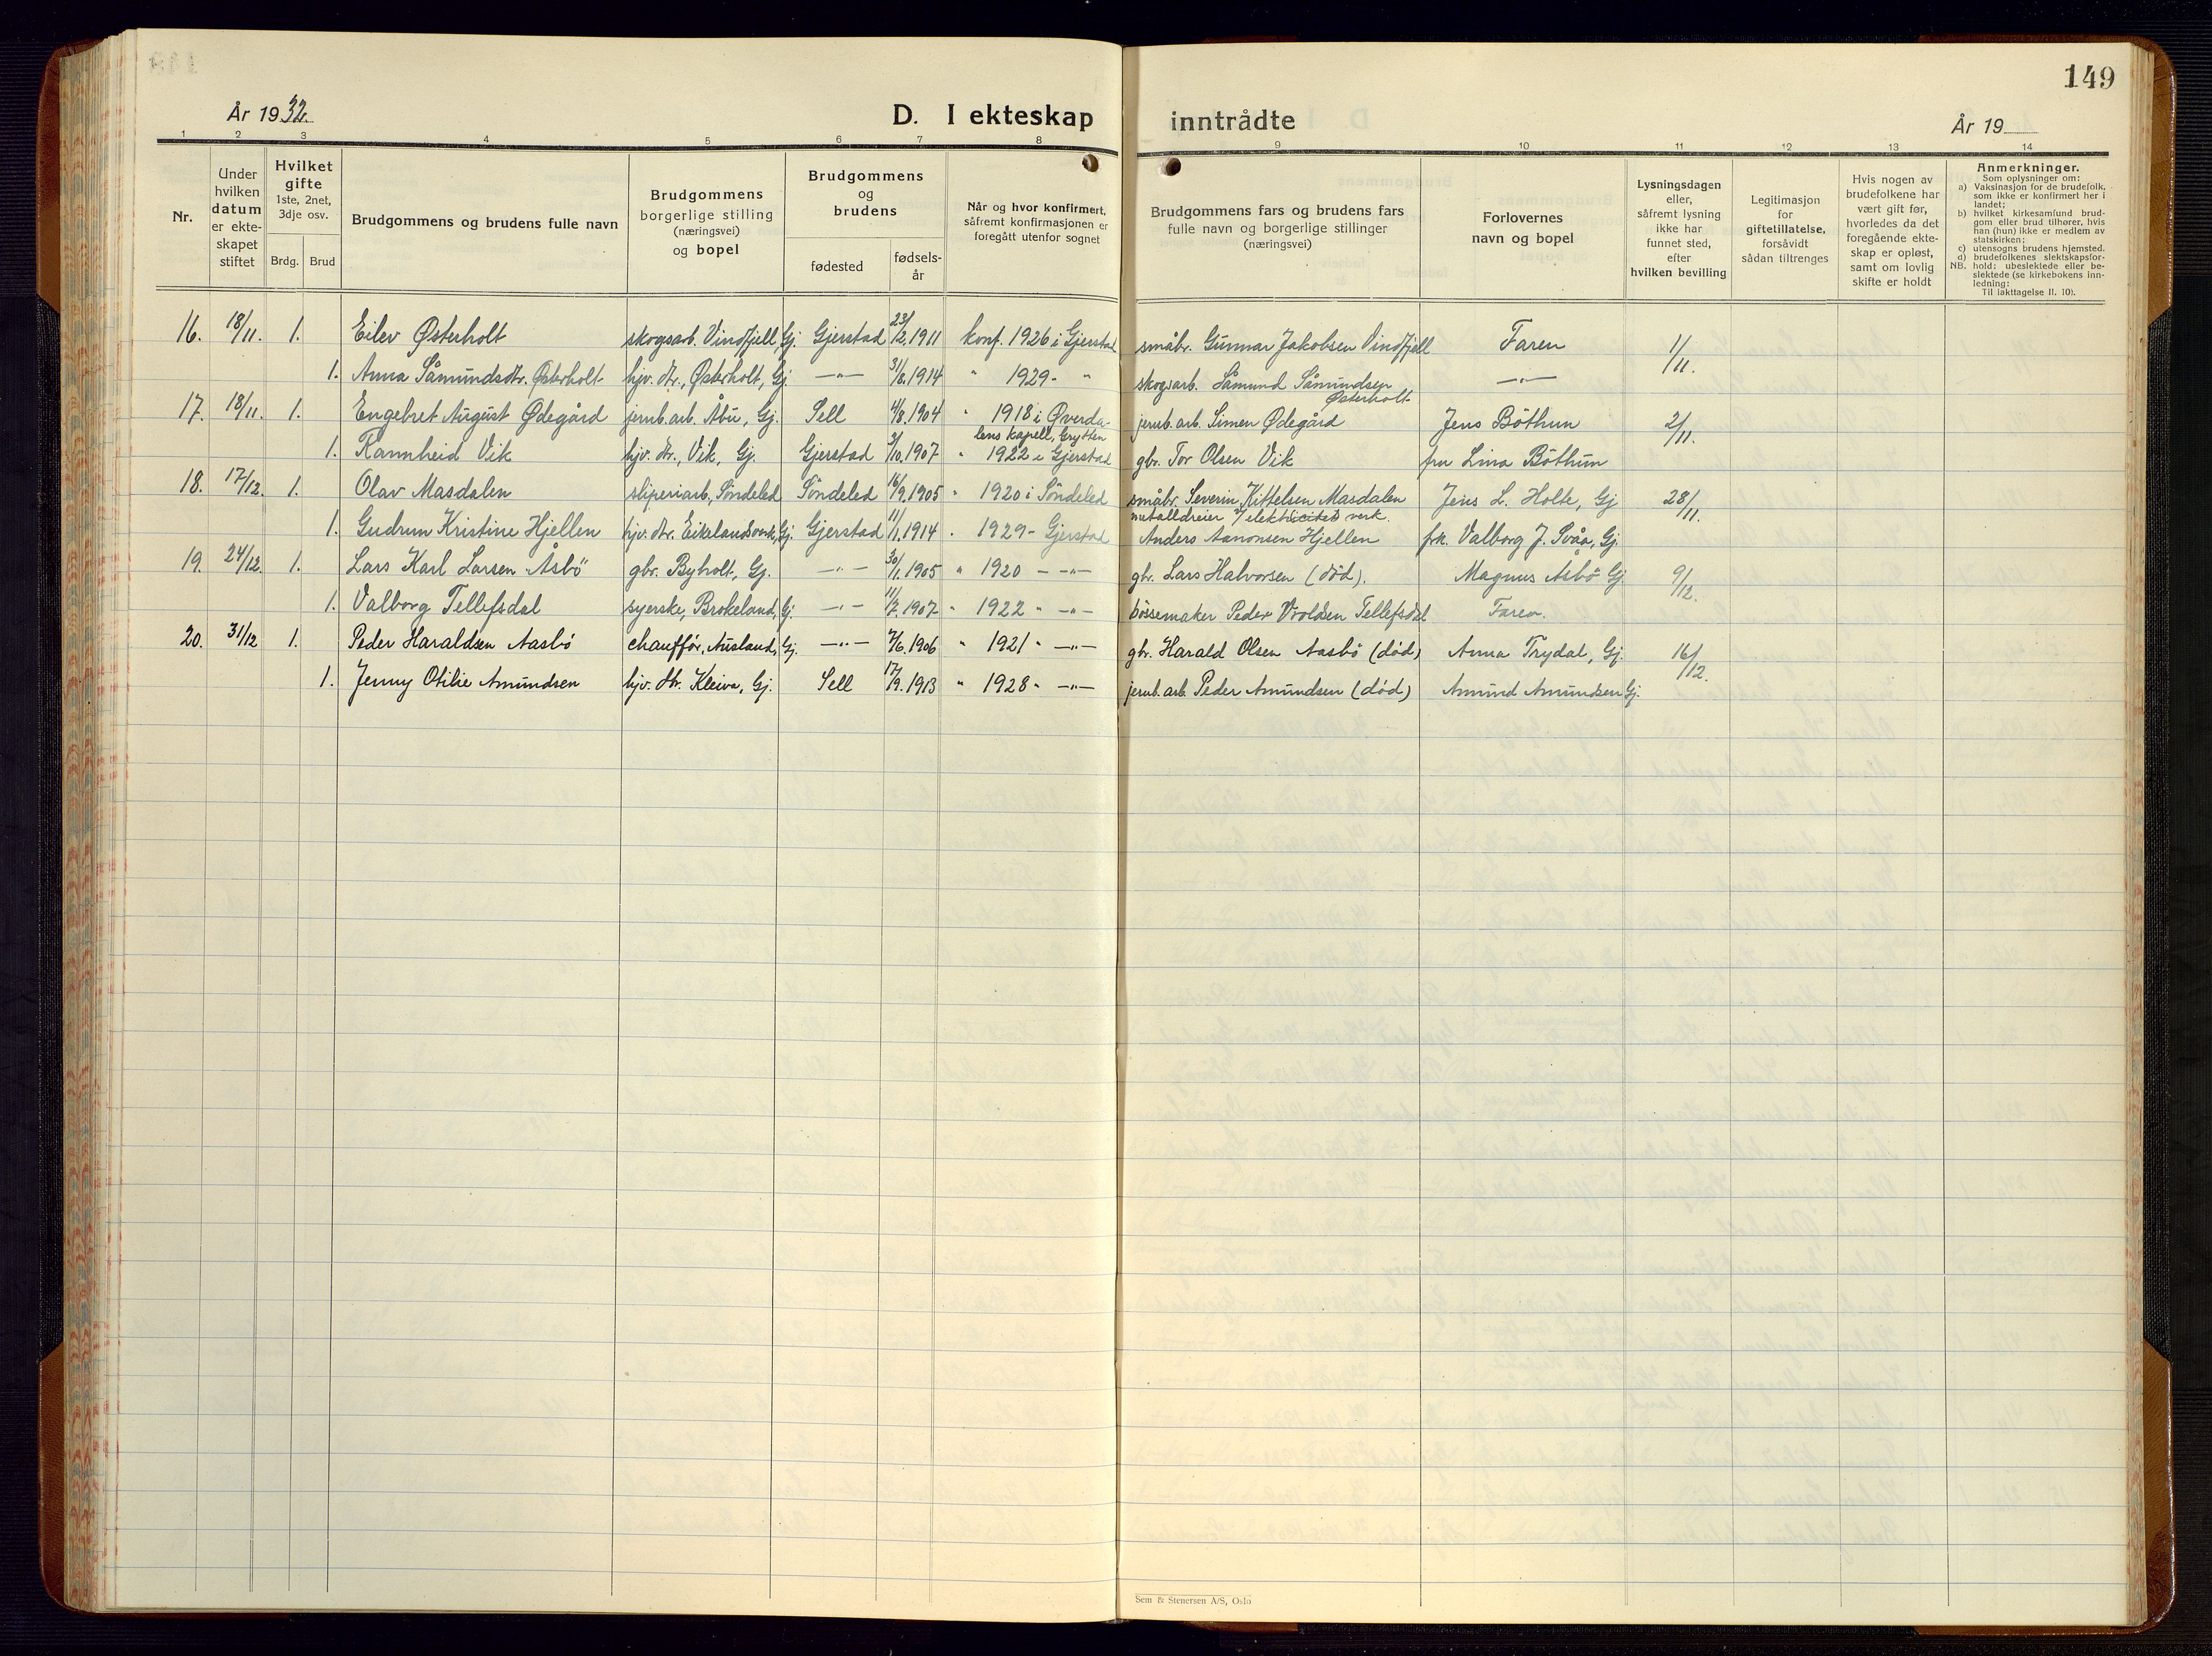 149
År 1932.
D. I ekteskap inntrådte
År 19
1 2 3 4 5 6 7 8 9 10 11 12 13 14
Nr.
Under
hvilken
datum
er ekte-
skapet
stiftet
Hvilket
gifte
1ste, 2net,
3dje osv.
Brdg. Brud
Brudgommens og brudens fulle navn
Brudgommens
borgerlige stilling
(næringsvei)
og bopel
Brudgommens
og
brudens
fødested
fødsels-
år
Når og hvor konfirmert,
såfremt konfirmasjonen er
foregått utenfor sognet
Brudgommens fars og brudens fars
fulle navn og borgerlige stillinger
(næringsvei)
Forlovernes
navn og bopel
Lysningsdagen
eller,
såfremt lysning
ikke har
funnet sted,
efter
hvilken bevilling
Legitimasjon
for
giftetillatelse,
forsåvidt
sådan tiltrenges
Hvis nogen av
brudefolkene har
vært gift før,
hvorledes da det
foregående ekte-
skap er opløst,
samt om lovlig
skifte er holdt
Anmerkninger.
Som oplysninger om:
a) Vaksinasjon for de brudefolk,
som ikke er konfirmert her i
landet;
b) hvilket kirkesamfund brud-
gom eller brud tilhører, hvis
han (hun) ikke er medlem av
statskirken;
c) utensogns brudens hjemsted.
d) brudefolkenes slektskapsfor-
NB. hold: ubeslektede eller be-
slektede (se kirkebokens inn-
ledning:
Til iakttagelse II, 10).
16. 18/11. 1. Eilev Østerholt skogsarb. Vindfjell Gj. Gjerstad 23/2.1911 konf. 1926 i Gjerstad småbr. Gunnar Jakobsen Vindfjell Faren 1/11.
1. Anna Såmundsdtr. Østerholt hjv. dtr., Østerholt, Gj. —"— 31/8.1914 " 1929 - " skogsarb. Såmund Såmundsen Østerholt —"—
17. 18/11. 1. Engebret August Ødegård jernb.arb. Åbu, Gj. Sell 4/8.1904 " 1918 i Øverda-
lens kapell, Grytten jernb. arb. Simen Ødegård Jens Böthun 2/11.
1. Rannheid Vik hjv. dtr., Vik, Gj. Gjerstad 3/10.1907 " 1922 i Gjerstad gbr. Tor Olsen Vik fru Lina Böthun
18. 17/12. 1. Olav Masdalen sliperiarb., Söndeled Söndeled 16/9.1905 " 1920 i Söndeled småbr. Severin Kittelsen Masdalen Jens L. Holte, Gj 28/11.
1. Gudrun Kristine Hjellen hjv. dtr. Eikelandsverk, Gj. Gjerstad 11/1.1914 " 1929 - Gjerstad metalldreier v/ elektricitets verk.
Anders Aanonsen Hjellen frk. Valborg J. Svåa, Gj.
19. 24/12. 1. Lars Karl Larsen Åsbö gbr. Byholt, Gj. —"— 30/1.1905 " 1920 - —"— gbr. Lars Halvorsen (död). Magnus Asbö Gj 9/12.
1. Valborg Tellefsdal syerske, Brokeland, Gj. —"— 11/7.1907 " 1922 - —"— bössemaker Peder Vroldsen Tellefsdal Faren.
20. 31/12 1. Peder Haraldsen Aasbö chauffør, Ausland, Gj. —"— 7/6.1906 " 1921 - —"— gbr. Harald Olsen Aasbö (död) Anna Trydal, Gj. 16/12.
1. Jenny Otilie Amundsen hjv. dtr. Kleiva, Gj. Sell 17/9.1913 " 1928 - —"— jernb. arb. Peder Amundsen (död) Amund Amundsen Gj.
Sem & Stenersen A/S, Oslo